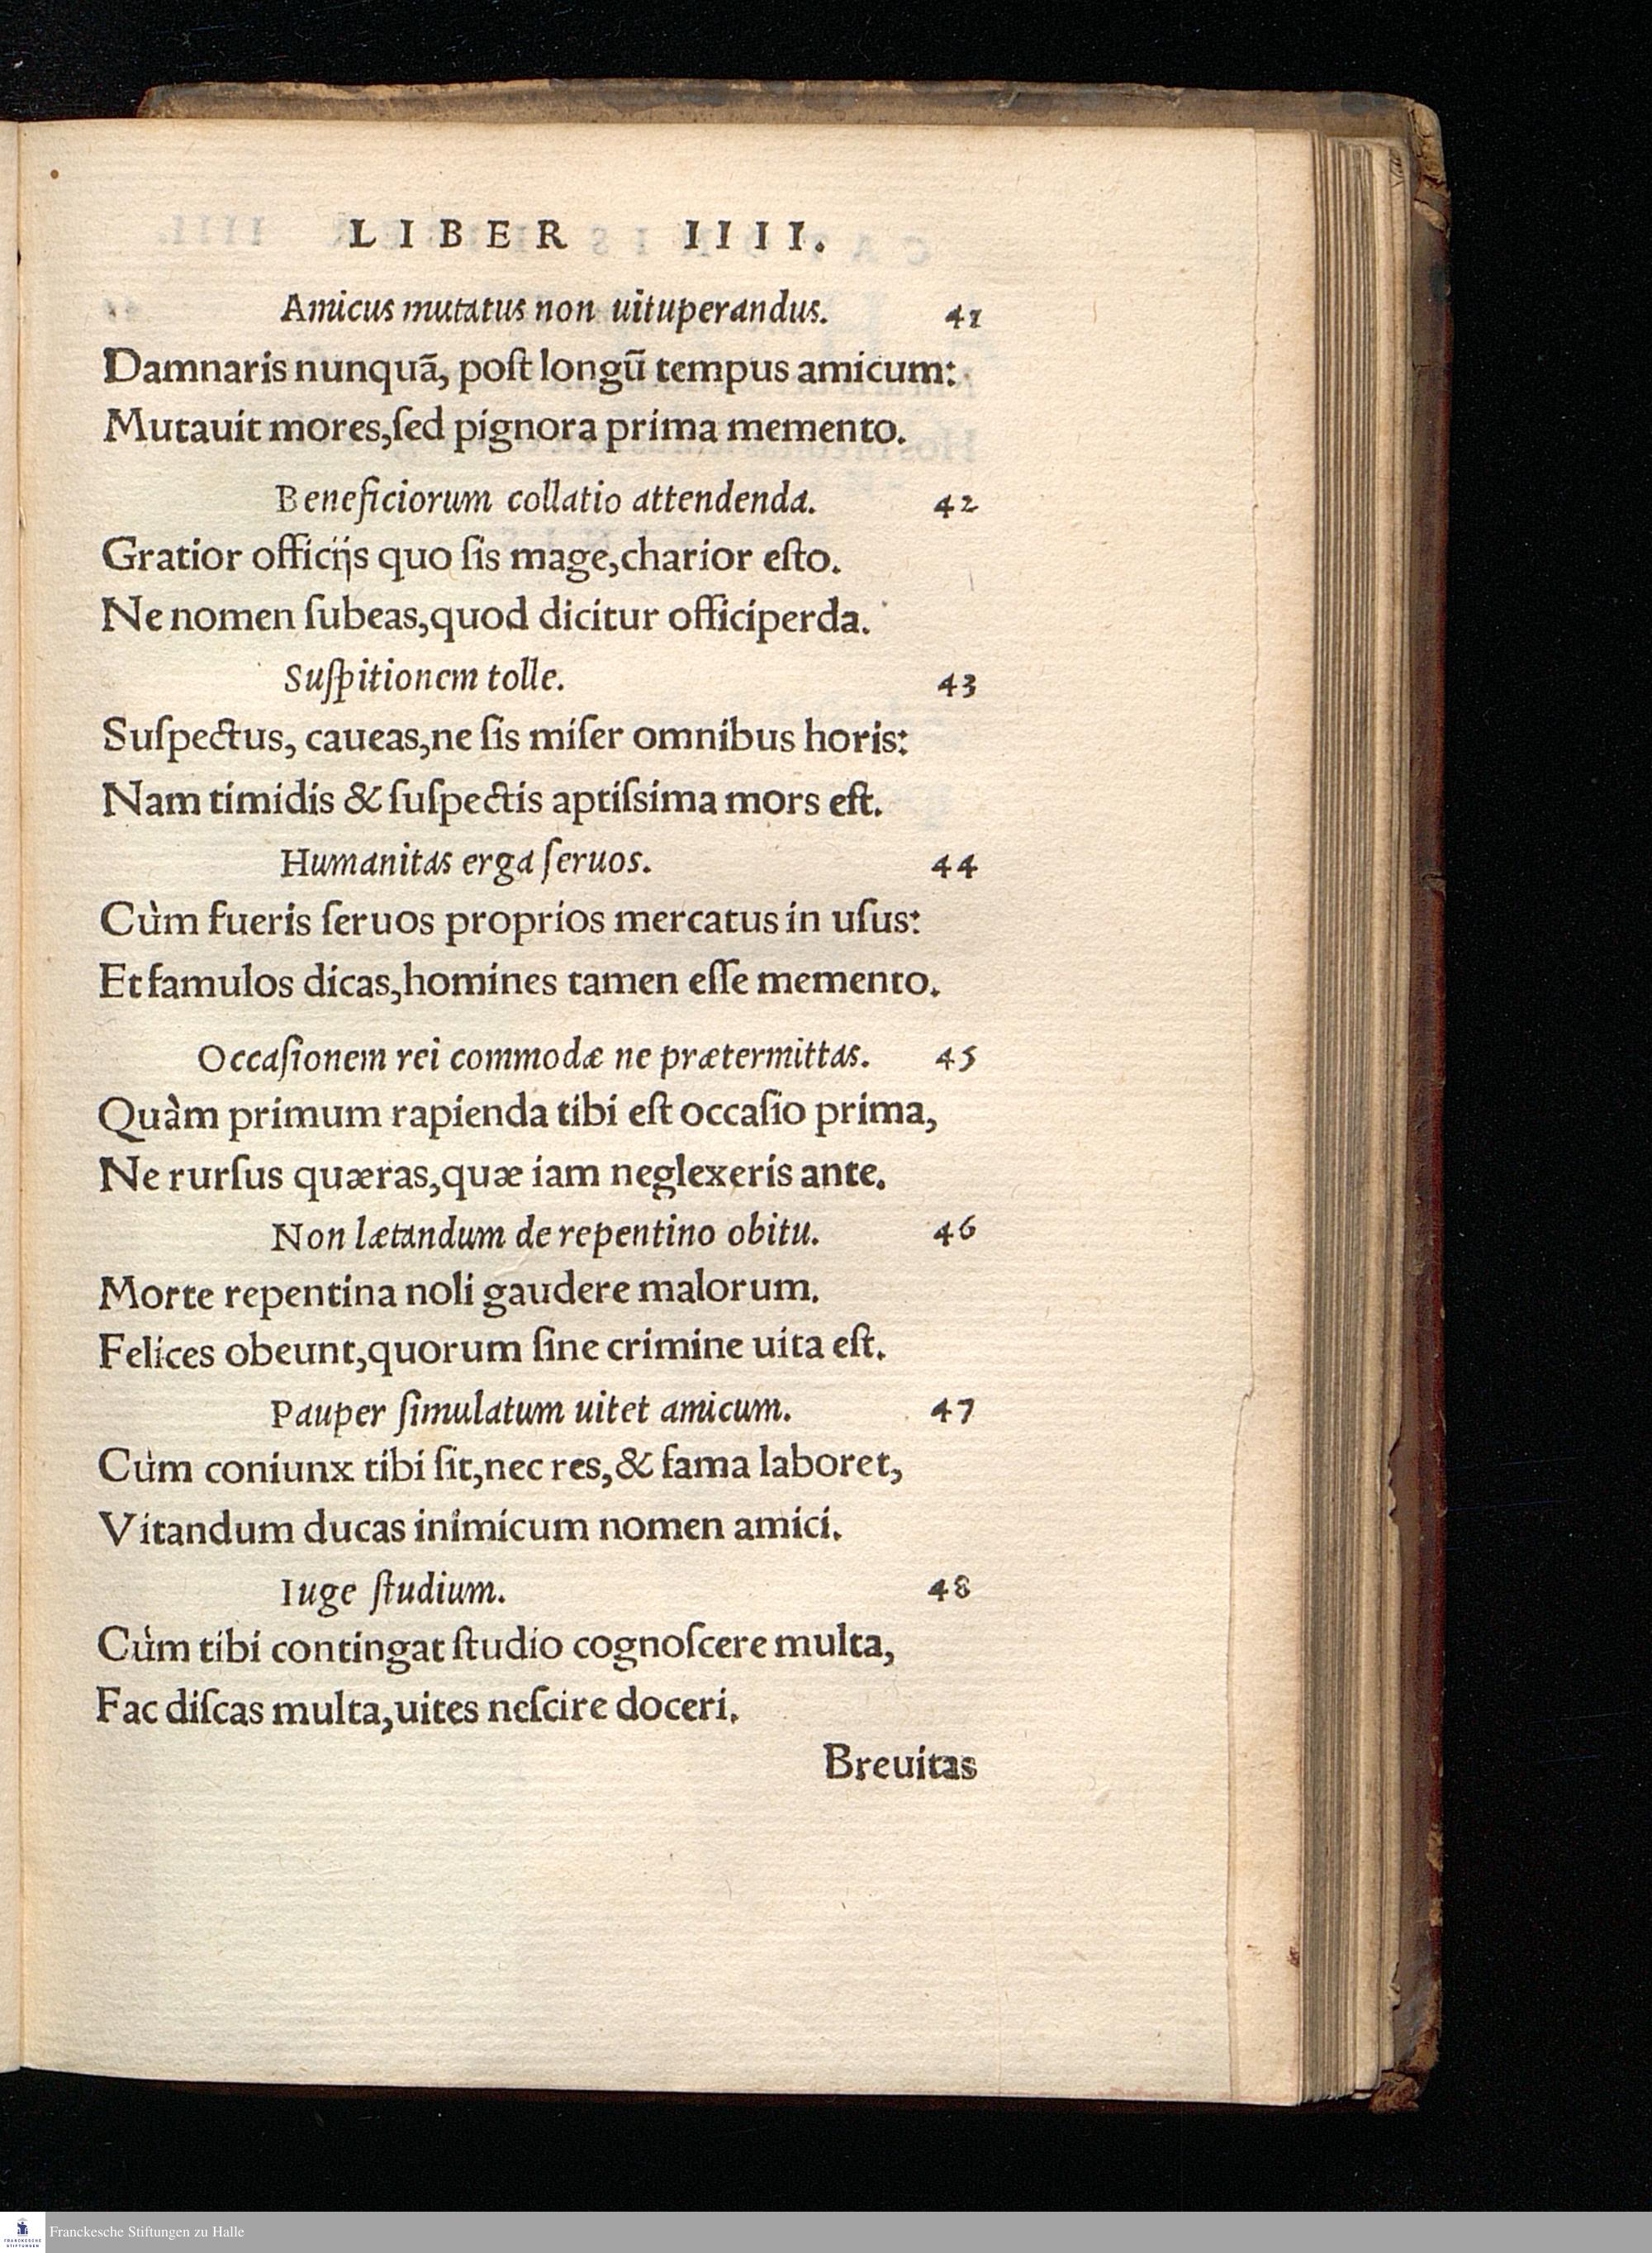 LIBER IIII.
Amicus mutatus non uituperandus. 41
Damnaris nunquā, poſt longū tempus amicum:
Mutauit mores,ſed pignora prima memento.
Beneficiorum collatio attendenda. 42
Gratior officijs quo ſis mage,charior eſto.
Ne nomen ſubeas,quod dicitur officiperda.
Suſpitionem tolle. 43
Suſpectus, caueas,ne ſis miſer omnibus horis:
Nam timidis & ſuſpectis aptiſsima mors eſt.
Humanitas erga ſeruos. 44
Cùm fueris ſeruos proprios mercatus in uſus:
Et famulos dicas,homines tamen eſſe memento.
Occaſionem rei commodæ ne prætermittas. 45
Quàm primum rapienda tibi eſt occaſio prima,
Ne rurſus quæras,quæ iam neglexeris ante.
Non lætandum de repentino obitu. 46
Morte repentina noli gaudere malorum.
Felices obeunt,quorum ſine crimine uita eſt.
Pauper ſimulatum uitet amicum. 47
Cùm coniunx tibi ſit,nec res,& fama laboret,
Vitandum ducas inimicum nomen amici.
Iuge ſtudium. 48
Cùm tibi contingat ſtudio cognoſcere multa,
Fac diſcas multa,uites neſcire doceri.
Breuitas
Franckesche Stiftungen zu Halle